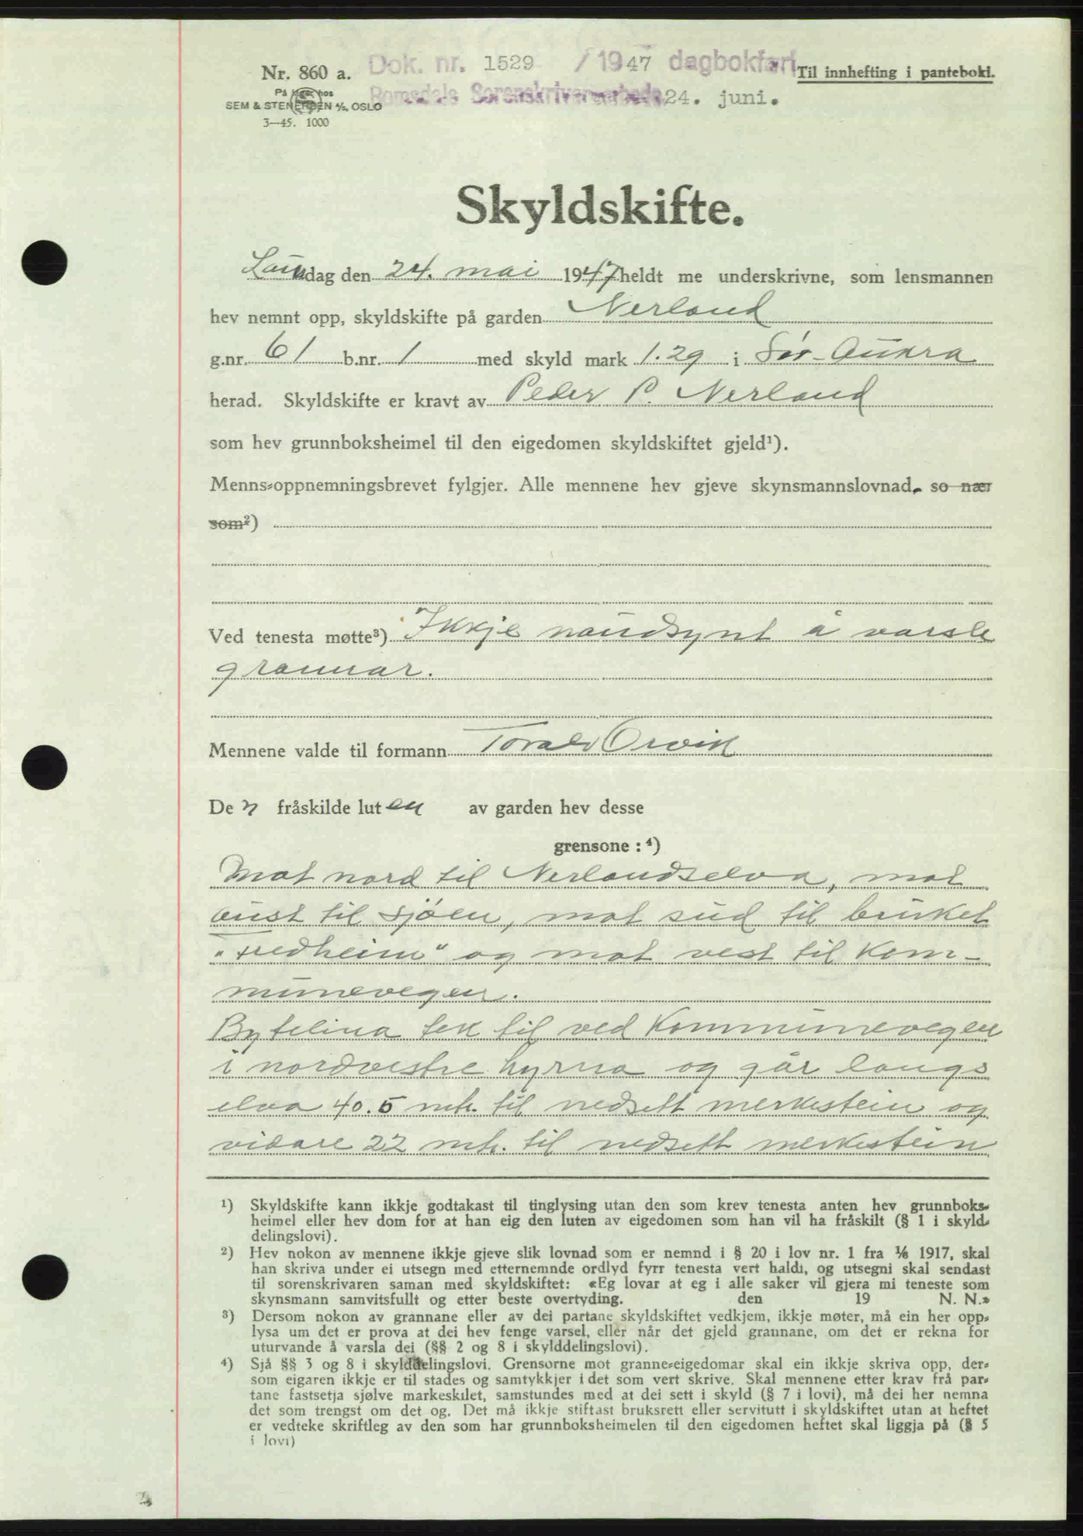 Nr. 860 a.
Dok. nr. 1529 / 1947 dagbokført
Til innhefting i pantebok1.
På lager hos
SEM & STENERSEN A/S, OSLO
Romsdals Sorenskriverembede 24. juni.
3—45. 1000
Skyldskifte.
Laurdag den 24. mai 1947 heldt me underskrivne, som lensmannen
hev nemnt opp, skyldskifte på garden Nerland
g.nr. 61 b.nr. 1 med skyld mark 1.29 i Sør-Aukra
herad. Skyldskifte er kravt av Peder P. Nerland
som hev grunnboksheimel til den eigedomen skyldskiftet gjeld¹).
Menns-oppnemningsbrevet fylgjer. Alle mennene hev gjeve skynsmannslovnad. so nær
som²)
Ved tenesta møtte³) Ikkje naudsynt å varsle
grannar.
Mennene valde til formann Torald Orvik
De n fråskilde luten av garden hev desse
grensone : ⁴)
Mot nord til Nerlandselva, mot
aust til sjøen, mot sud til bruket
"Fredheim" og mot vest til kom-
munevegen.
Bytelina tek til ved Kommunevegen
i nordvestre hyrna og går langs
elva 40.5 mtr. til nedsett merkestein og
vidare 22 mtr. til nedsett merkestein
¹) Skyldskifte kann ikkje godtakast til tinglysing utan den som krev tenesta anten hev grunnboks-
heimel eller hev dom for at han eig den luten av eigedomen som han vil ha fråskilt (§ 1 i skyld-
delingslovi).
²) Hev nokon av mennene ikkje gjeve slik lovnad som er nemnd i § 20 i lov nr. 1 fra 1/6 1917, skal
han skriva under ei utsegn med etternemnde ordlyd fyrr tenesta vert haldi, og utsegni skal sendast
til sorenskrivaren saman med skyldskiftet: «Eg lovar at eg i alle saker vil gjera mi teneste som
skynsmann samvitsfullt og etter beste overtyding. den 19 N. N.»
³) Dersom nokon av grannane eller av dei partane skyldskiftet vedkjem, ikkje møter, må ein her opp-
lysa um det er prova at dei hev fenge varsel, eller når det gjeld grannane, om det er rekna for
uturvande å varsla dei (§§ 2 og 8 i skylddelingslovi).
⁴) Sjå §§ 3 og 8 i skylddelingslovi. Grensorne mot granne-eigedomar skal ein ikkje skriva opp, der-
som eigaren ikkje er til stades og samtykkjer i det som vert skrive. Skal mennene etter krav frå par-
tane fastsetja sjølve markeskilet, samstundes med at dei sett i skyld (§ 7 i lovi), må dei her nemna
det som trengst om det og. Det må ikkje stiftast bruksrett eller servitutt i skyldskiftet utan at heftet
er vedteke skriftleg av den som har grunnboksheimelen til den eigedomen heftet skal liggja på (§ 5
i lovi)